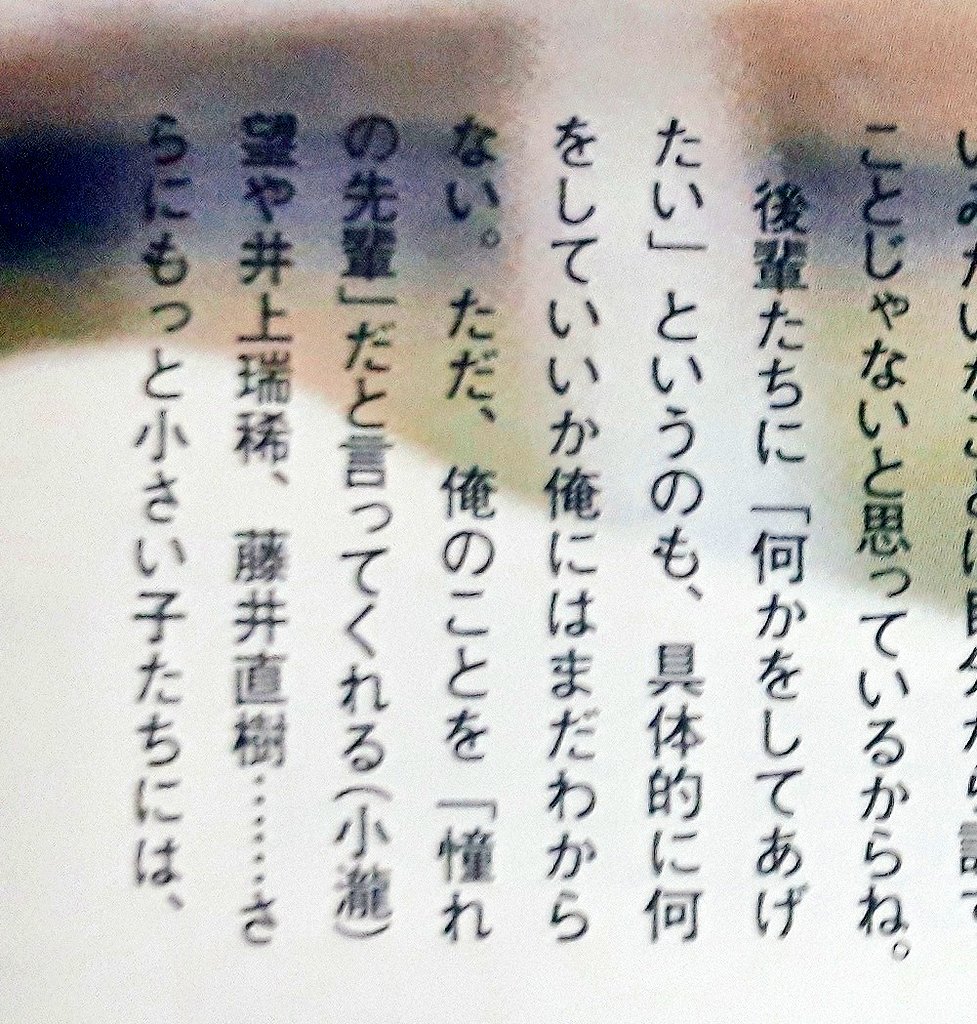 ことじゃないと思っているからね。
後輩たちに「何かをしてあげ
たい」というのも、具体的に何
をしていいか俺にはまだわから
ない。ただ、俺のことを「憧れ
の先輩」だと言ってくれる(小瀧)
望や井上瑞稀、藤井直樹……さ
らにもっと小さい子たちには、